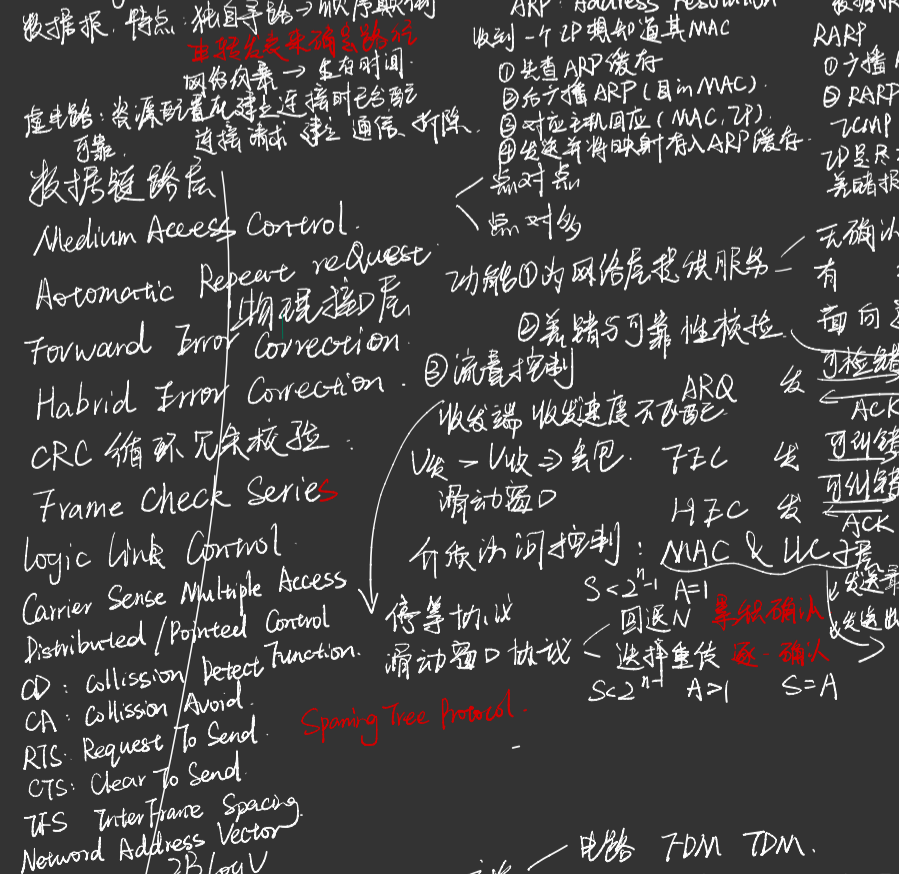 数据报：特点：独自寻路→
由转发表来确定路径
网络拥塞→生存时间.
虚电路：资源配置在建立连接时已分配
可靠. 连接请求 建立 通信 拆除.
数据链路层
Medium Access Control.
Aotomatic Repeart reQuest.
物理接口层
Forward Error Correction.
Habrid Error Correction.
CRC 循环冗余校验.
Frame Check Series
Logic Link Control.
Carrier Sense Multiple Access
Distributed/Pointed Control
Function.
CD: Collission Detect
CA: Collission Avoid.
RTS: Request To Send.
CTS: Clear To Send.
IFS InterFrame Spacing.
Netword Address Vector
ARP: Address Resolution
收到一个IP想知道其MAC
①先查ARP缓存
②后广播ARP(目的MAC).
③对应主机回应(MAC, IP).
④发送并将映射存入ARP缓存.
点对点
点对多
功能①为网络层提供服务
②差错与可靠性校验
③流量控制
收发端 收发速度不匹配
V发>V收⇒丢包.
滑动窗口
介质访问控制: MAC & LLC子层
停等协议
滑动窗口协议
S<2ⁿ-1 A=1
回退N 累积确认
选择重传 逐一确认
S<2ⁿ⁻¹ A>1 S=A
Spaning Tree Protocol.
RARP
①广播
② RARP
ICMP
IP是
差错报
无确认
有
面向
ARQ 发 可检错
ACK
FEC 发 可纠错
HEC 发 可纠错
ACK
电路 FDM TDM.